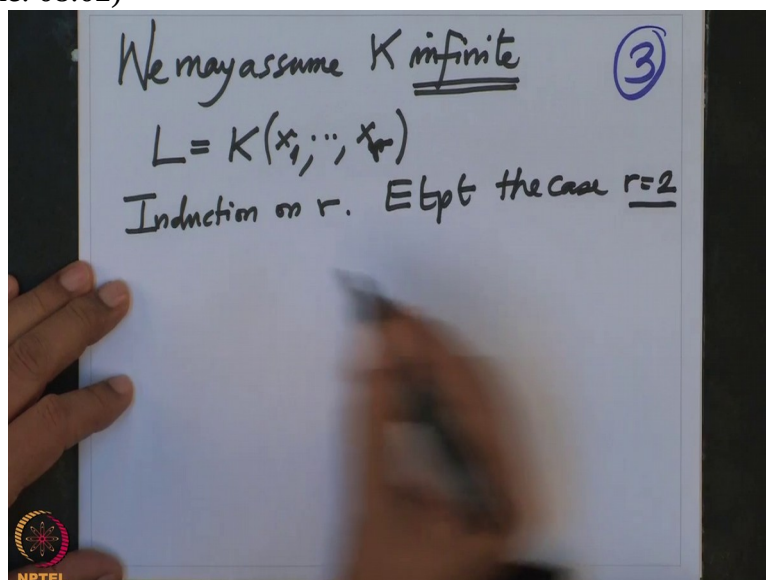 We may assume K infinite
3
L = K(x₁, ..., xᵣ)
Induction on r. Etpt the case r=2
NPTEL